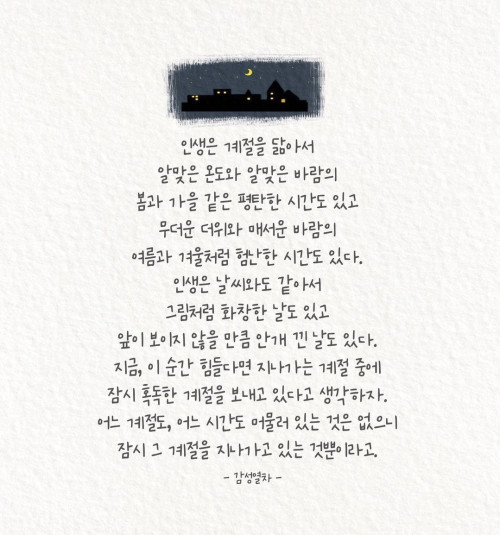 인생은 계절을 닮아서
알맞은 온도와 알맞은 바람의
봄과 가을 같은 평탄한 시간도 있고
무더운 더위와 매서운 바람의
여름과 겨울처럼 험난한 시간도 있다.
인생은 날씨와도 같아서
그림처럼 화창한 날도 있고
앞이 보이지 않을 만큼 안개 낀 날도 있다.
지금, 이 순간 힘들다면 지나가는 계절 중에
잠시 혹독한 계절을 보내고 있다고 생각하자.
어느 계절도, 어느 시간도 머물러 있는 것은 없으니
잠시 그 계절을 지나가고 있는 것뿐이라고.
- 감성열차 -